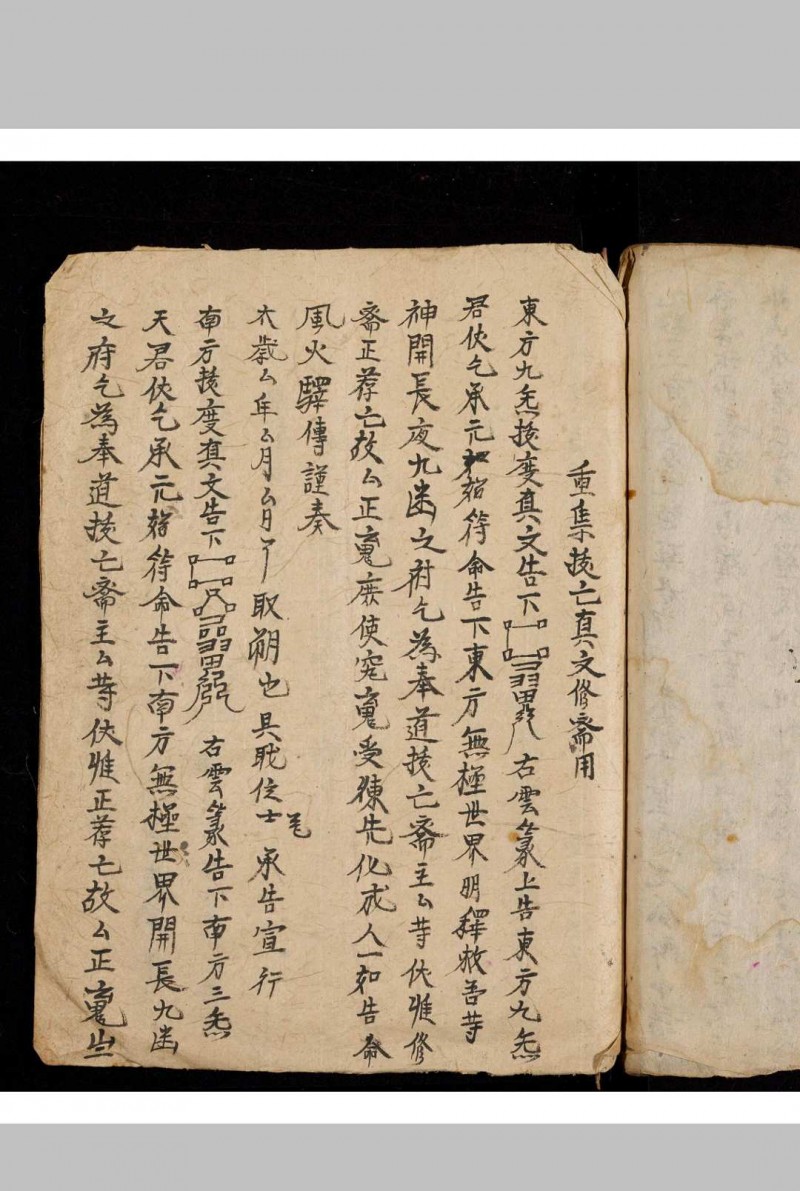 重集拔亡真文修齋用
東方九炁拔度真文告下 右雲篆上告東方九炁
君伏乞承元始符命告下東方無極世界明釋救吾等
神開長夜九幽之府乞為奉道拔亡齋主厶等伏惟修
齋正荐亡故厶正䰟庶使冤䰟受煉先化成人一如告命
風火驛傳謹奏
太歲厶年厶月厶日 取朔也 具職位士 承告宣行
南方拔度真文告下 右雲篆告下南方三炁
天君伏乞承元始符命告下南方無極世界開長九幽
之府乞為奉道拔亡齋主厶等伏惟正荐亡故厶正䰟